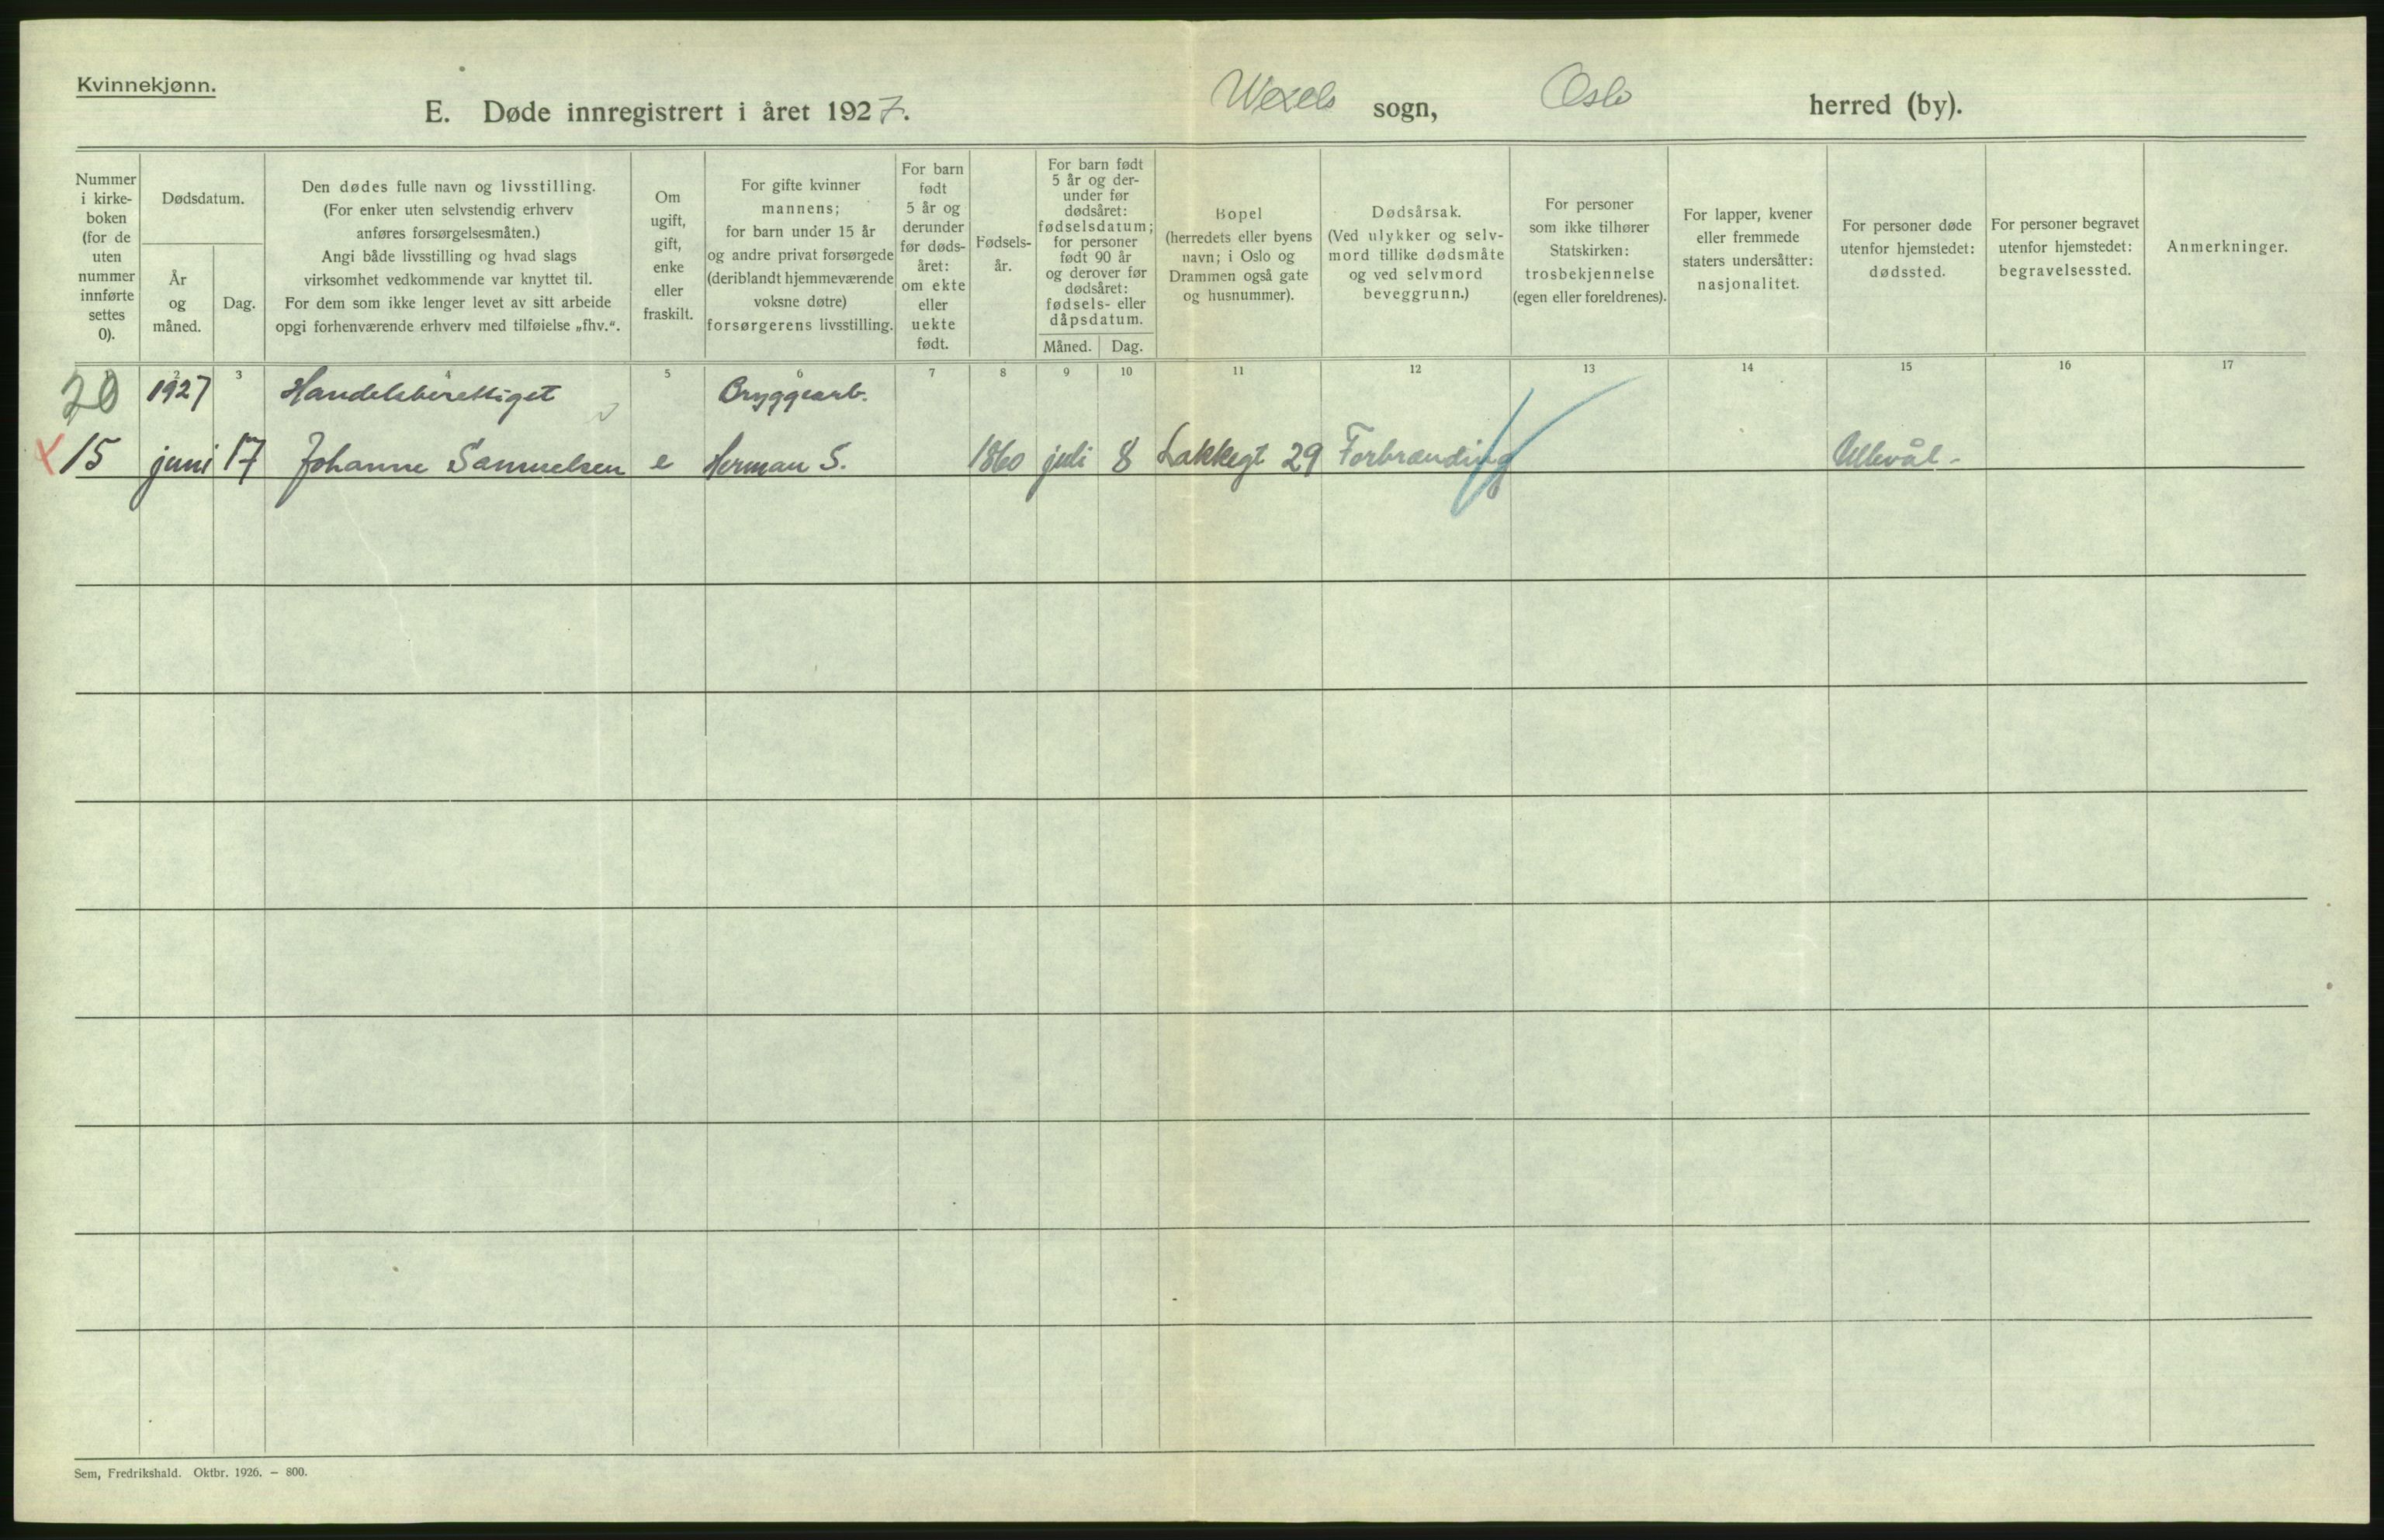 Kvinnekjønn.
E. Døde innregistrert i året 1927.
Wexels sogn, Oslo herred (by).
Nummer
i kirke-
boken
(for de
uten
nummer
innførte
settes
0).
Dødsdatum.
År
og
måned.
Dag.
Den dødes fulle navn og livsstilling.
(For enker uten selvstendig erhverv
anføres forsørgelsesmåten.)
Angi både livsstilling og hvad slags
virksomhet vedkommende var knyttet til.
For dem som ikke lenger levet av sitt arbeide
opgi forhenværende erhverv med tilføielse „fhv.“.
Om
ugift,
gift,
enke
eller
fraskilt.
For gifte kvinner
mannens;
for barn under 15 år
og andre privat forsørgede
(deriblandt hjemmeværende
voksne døtre)
forsørgerens livsstilling.
For barn
født
5 år og
derunder
før døds-
året:
om ekte
eller
uekte
født.
Fødsels-
år.
For barn født
5 år og der-
under før
dødsåret:
fødselsdatum;
for personer
født 90 år
og derover før
dødsåret:
fødsels- eller
dåpsdatum.
Måned. Dag.
Bopel
(herredets eller byens
navn; i Oslo og
Drammen også gate
og husnummer).
Dødsårsak.
(Ved ulykker og selv-
mord tillike dødsmåte
og ved selvmord
beveggrunn.)
For personer
som ikke tilhører
Statskirken:
trosbekjennelse
(egen eller foreldrenes).
For lapper, kvener
eller fremmede
staters undersåtter:
nasjonalitet.
For personer døde
utenfor hjemstedet:
dødssted.
For personer begravet
utenfor hjemstedet:
begravelsessted.
Anmerkninger.
2 3 4 5 6 7 8 9 10 11 12 13 14 15 16 17
20 1927 Handelsberettiget Bryggearb.
15 juni 17 Johanne Samuelsen e Herman S. 1860 juli 8 Lakkegt 29 Forbrænding Ullevål-
Sem, Fredrikshald. Oktbr. 1926. — 800.